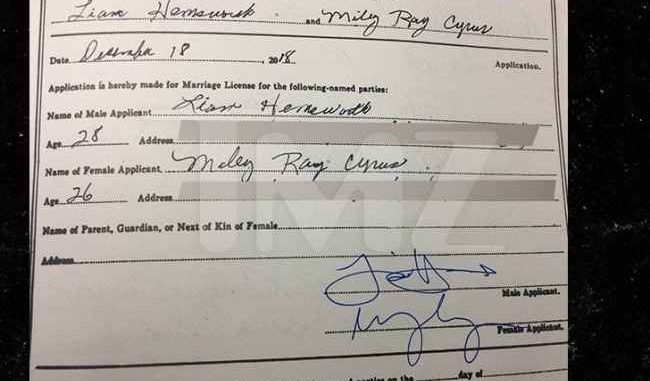 Liam Hemsworth and Miley Ray Cyrus
Date December 18, 2018 Application.
Application is hereby made for Marriage License for the following-named parties:
Name of Male Applicant Liam Hemsworth
Age 28 Address
Name of Female Applicant Miley Ray Cyrus
Age 26 Address
TMZ
Name of Parent, Guardian, or Next of Kin of Female
Address
Male Applicant.
Female Applicant.
parties on the day of